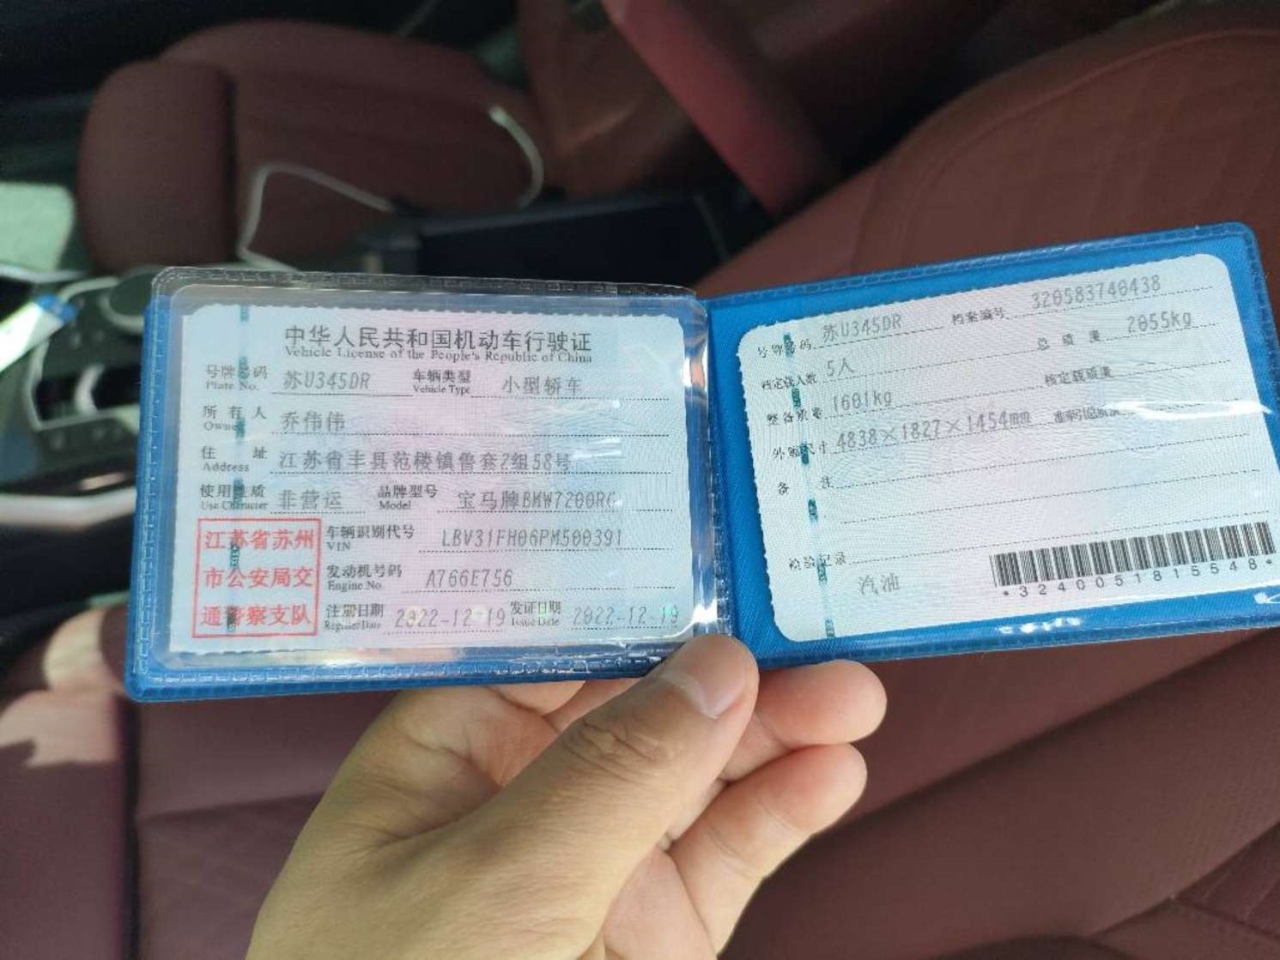 中华人民共和国机动车行驶证
Vehicle License of the People's Republic of China
号牌号码 苏U345DR 车辆类型 小型轿车
Plate No. Vehicle Type
所有人 乔伟伟
Owner
住址 江苏省丰县范楼镇鲁套2组58号
Address
使用性质 非营运 品牌型号 宝马牌BMW7200RC
Use Character Model
江苏省苏州
市公安局交
通警察支队
车辆识别代号 LBV31FH06PM500391
VIN
发动机号码 A766E756
Engine No.
注册日期 2022-12-19 发证日期 2022-12-19
Register Date Issue Date
号牌号码 苏U345DR 档案编号 320583740438
核定载人数 5人 总质量 2055kg
整备质量 1601kg 核定载质量
外廓尺寸 4838×1827×1454mm 准牵引总质量
备注
检验记录
汽油
*3240051815548*